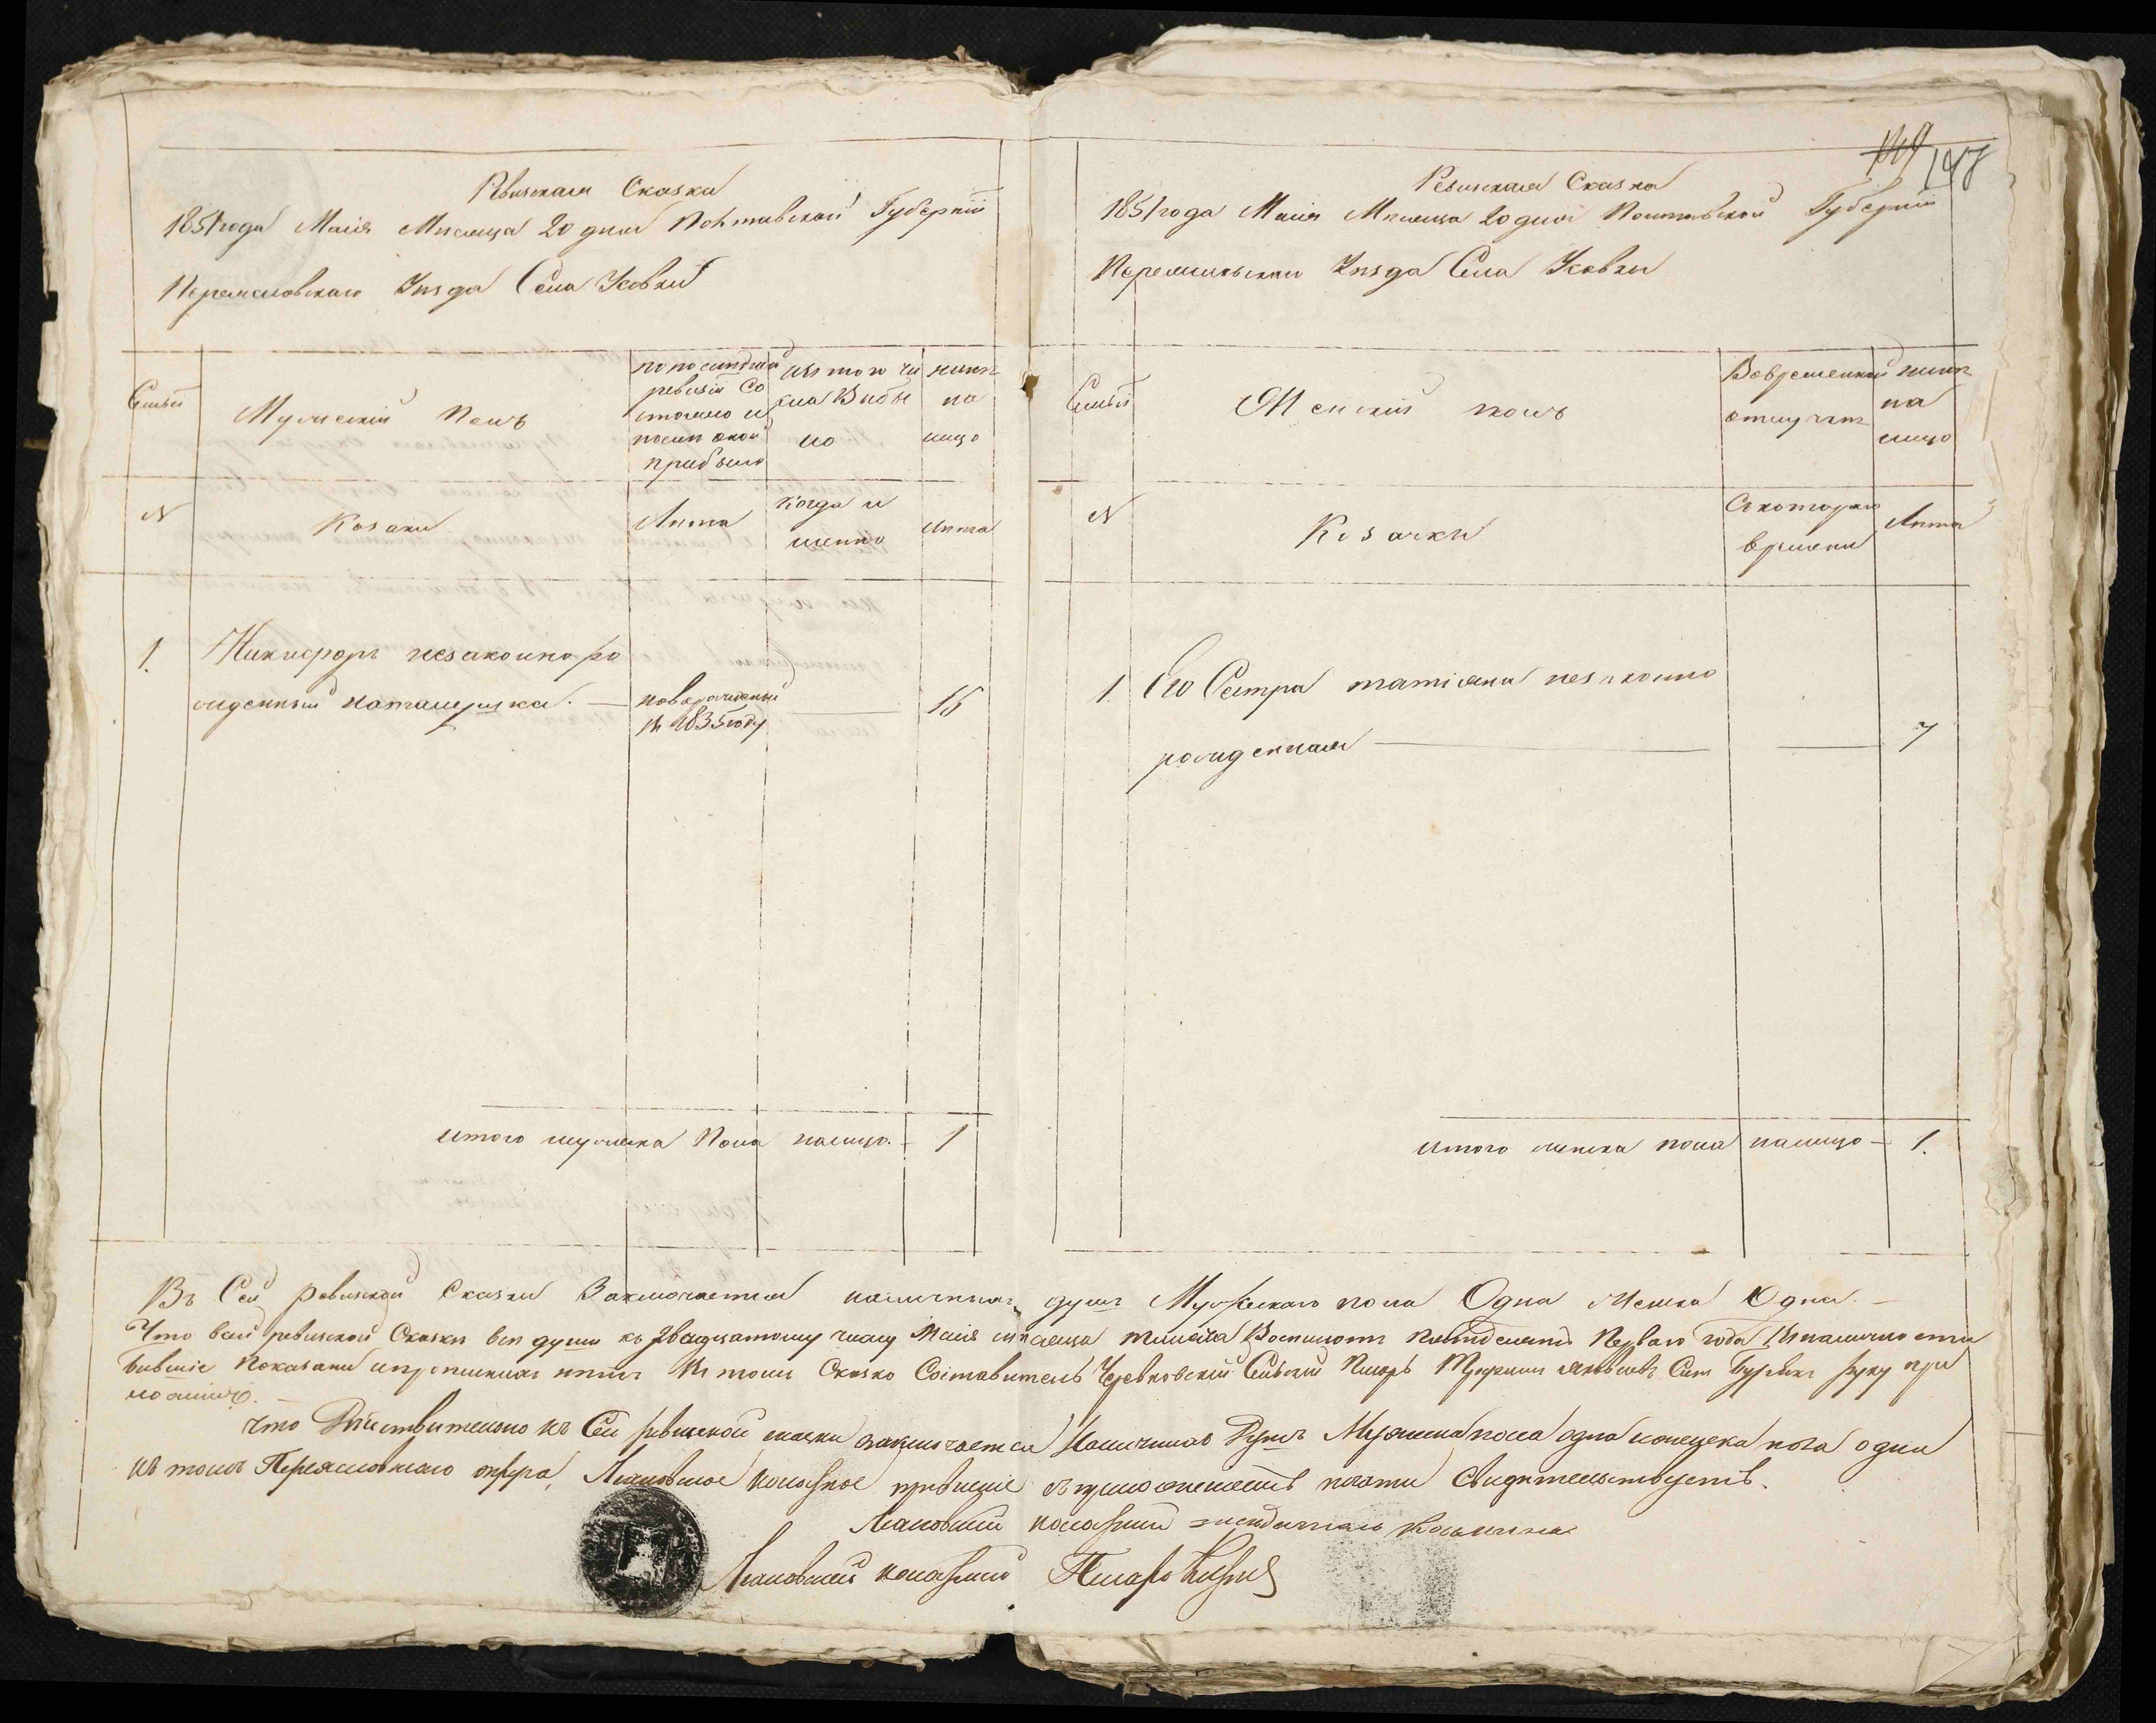 149 148
Ревизская Сказка
1851 года Маія Месяца 20 дня Полтавской Губерніи
Переяславскаго Уезда Села Усовки
Семьи
Мужескій Полъ
по последней
ревизіи Со
стояло и
после оной
прибыло
изъ того чи
сла Выбы
ло
ныне
на
лицо
N
Козаки
Лета
Когда и
именно
Лета
1.
Никифоръ незаконно ро
жденный
новорожденный
въ 1835 году
15
итого мужеска Пола налицо. 1
Ревизская Сказка
1851 года Маія Месяца 20 дня Полтавской Губерніи
Переяславскаго Уезда Села Усовки
Семьи
Женскій полъ
Вовременной
отлучке
ныне
на
лицо
N
Козачки
Скотораго
времени
Лета
1 Его Сестра татіана незаконно
рожденная 7
итого женска пола налицо 1.
Въ Сей ревизской Сказки Заключается наличныхъ душъ Мужескаго пола Одна Женска Одна.
Что всей ревизской Сказки все души къ двадцатому числу Маія месяца тысяча Восемьсотъ пятьдесятъ Перваго года въ наличности
бывшіе Показаны и пропискихъ нетъ Въ томъ Сказко Составитель Сельскій Писарь руку при
ложилъ.
Что Действительно въ Сей ревизской сказки заключается Наличныхъ Душъ Мужеска пола одна и женска пола одна
въ томъ Переясловскаго Волосное правленіе съ приложеніемъ печати Свидетельствуетъ.
волосный
волосный Писарь